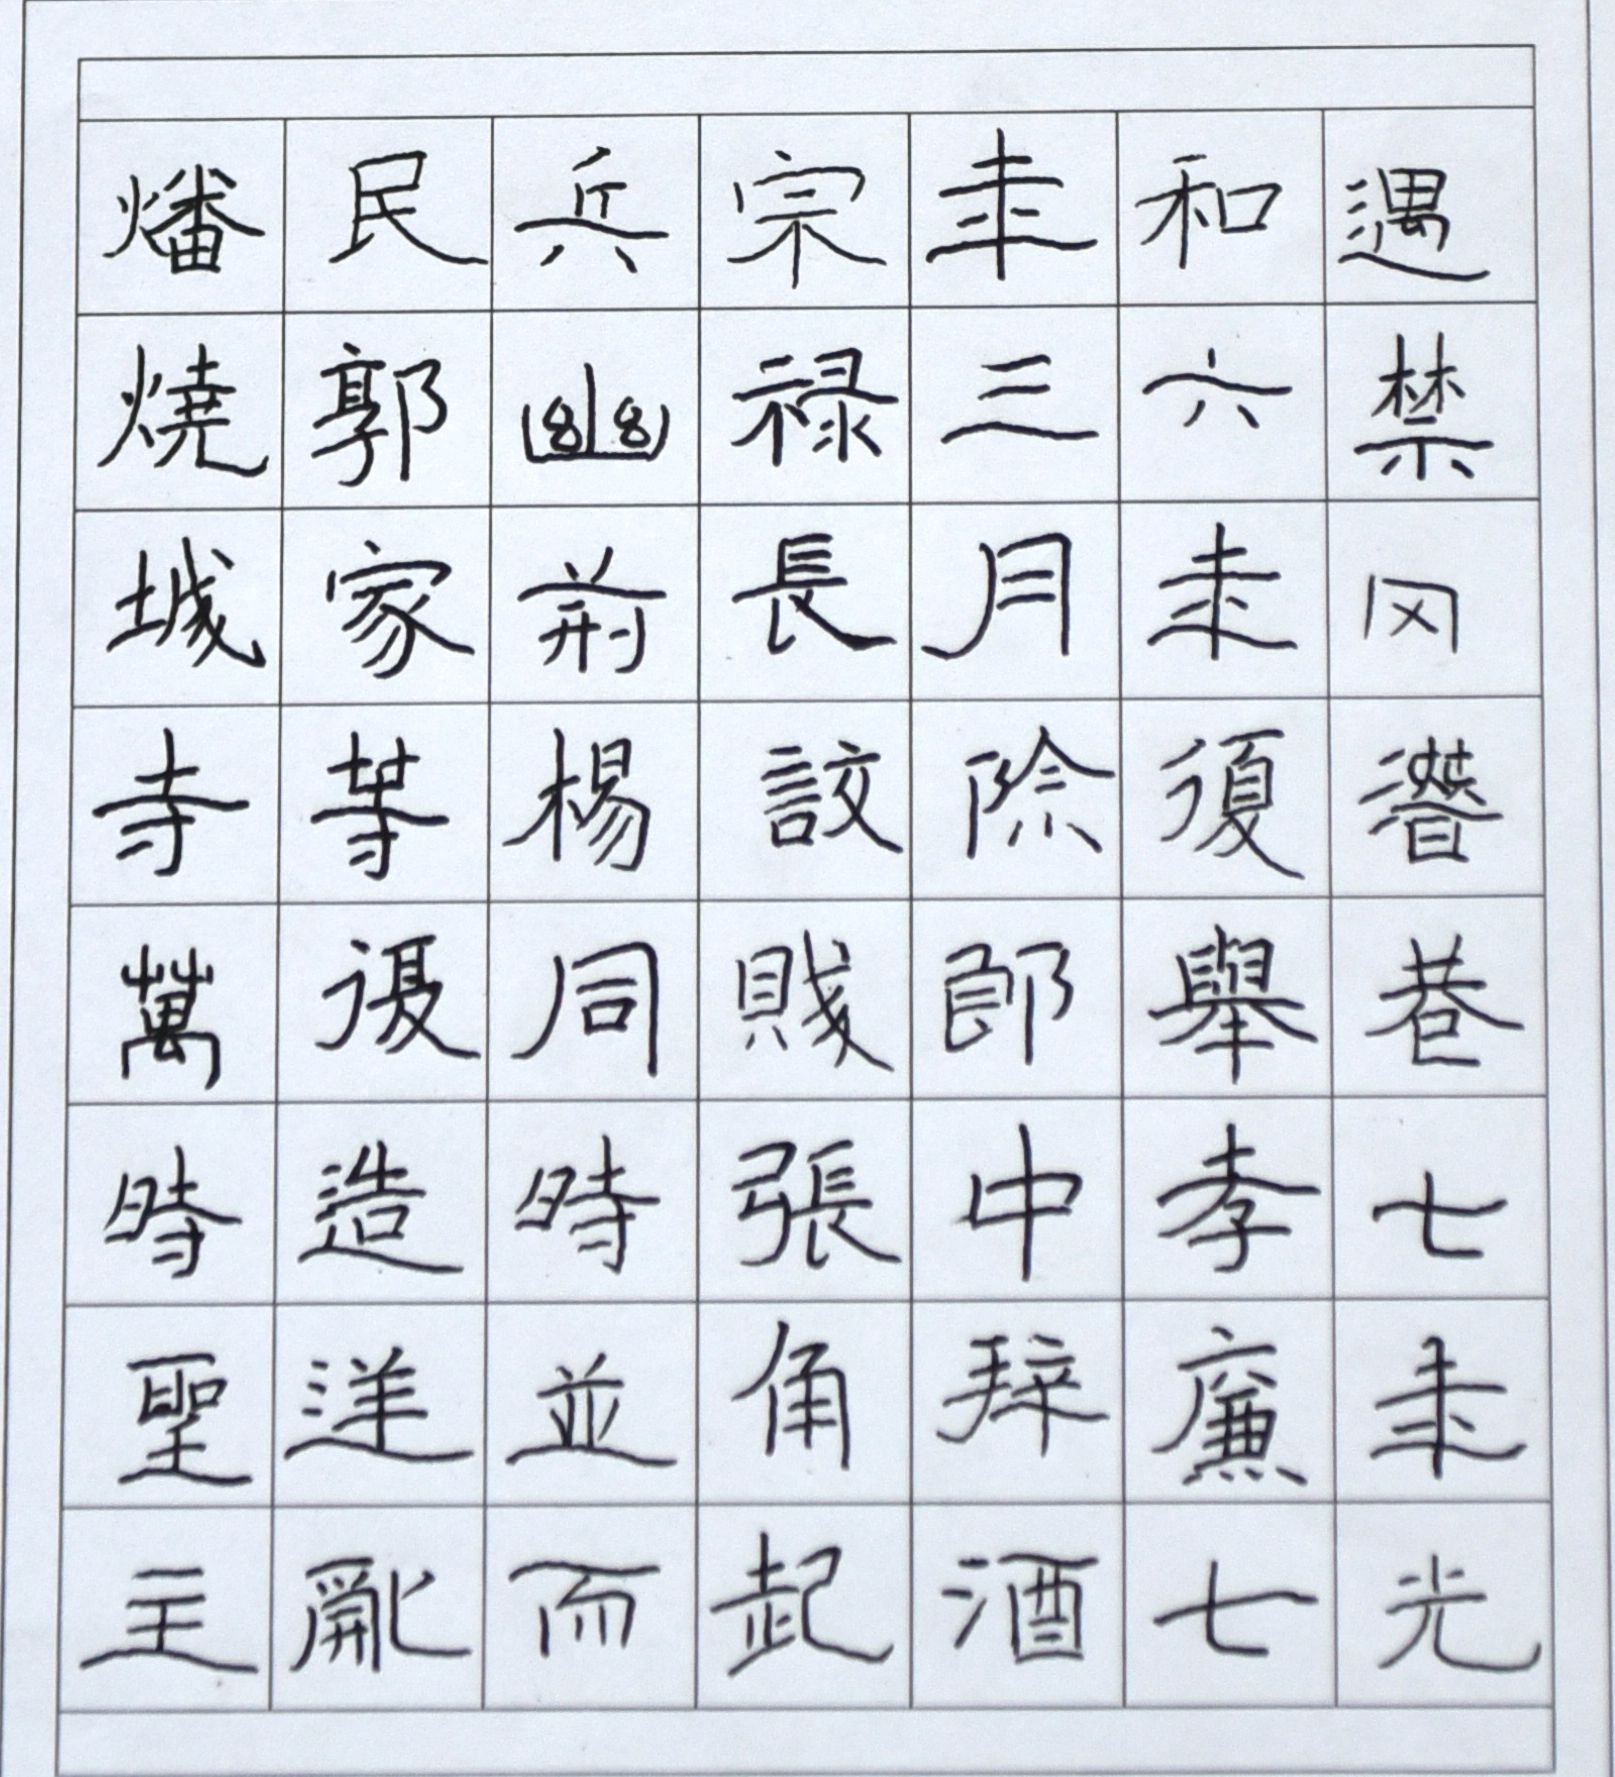 遇禁冈潛巷七年光
和六年復舉孝廉七
年三月除郎中拜酒
宗祿長訞賊張角起
兵幽荊楊同時並而
民郭家等復造逆亂
燔燒城寺萬時聖主